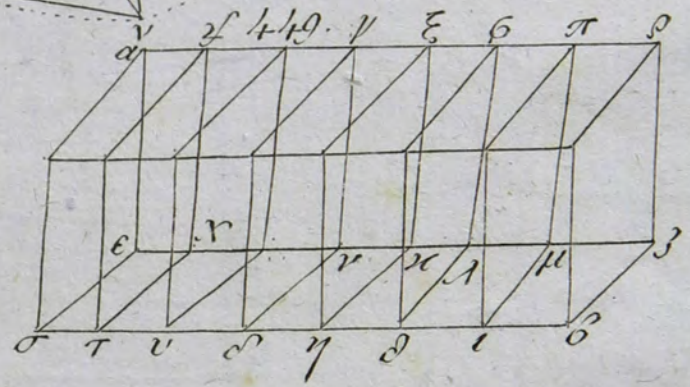 α 449. ν ξ ϭ π ρ
ε ν κ λ μ ζ
σ τ υ δ η θ ι β